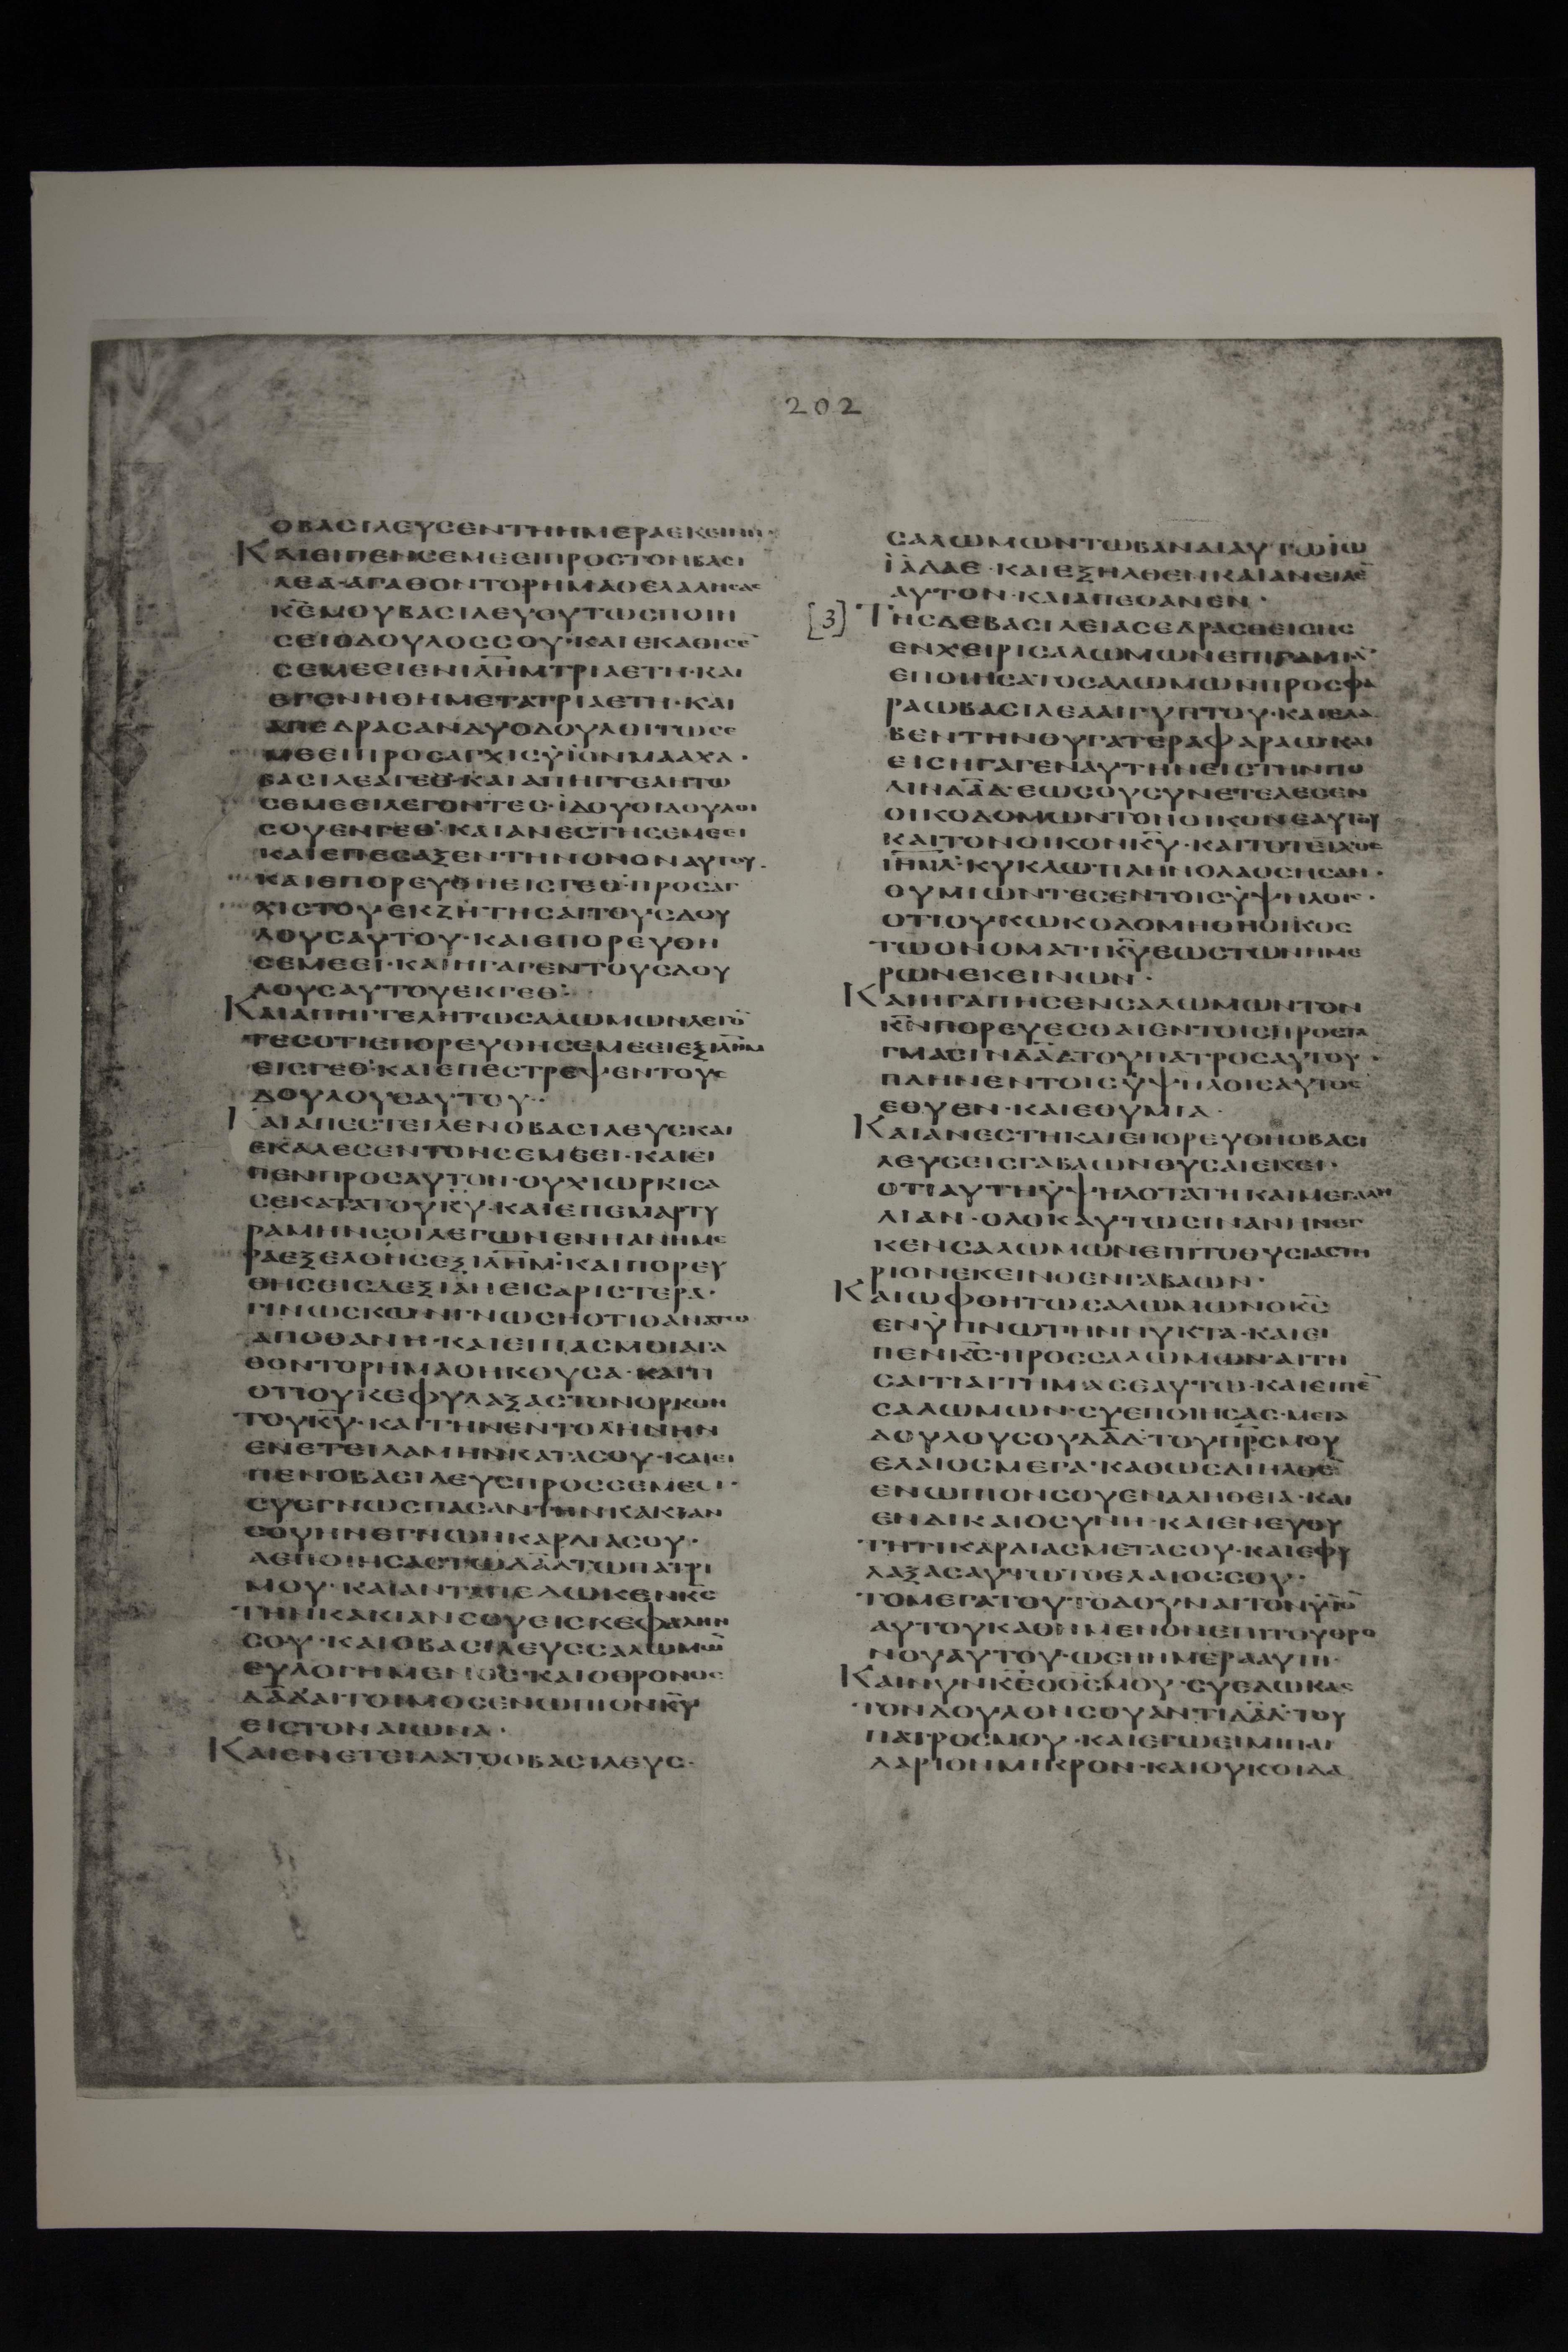 202
ΟΒΑCΙΛΕΥCΕΝΤΗΗΜΕΡΑΕΚΕΙΝΗ·
ΚΑΙΕΙΠΕΝCΕΜΕΕΙΠΡΟCΤΟΝΒΑCΙ
ΛΕΑ·ΑΓΑΘΟΝΤΟΡΗΜΑΟΕΛΑΛΗCΑC
Κ̅Ε̅ΜΟΥΒΑCΙΛΕΥΟΥΤΩCΠΟΙΗ
CΕΙΟΔΟΥΛΟCCΟΥ·ΚΑΙΕΚΑΘΙCΕ̅
CΕΜΕΕΙΕΝΙ̅Λ̅Η̅Μ̅ΤΡΙΑΕΤΗ·ΚΑΙ
ΕΓΕΝΗΘΗΜΕΤΑΤΡΙΑΕΤΗ·ΚΑΙ
ΑΠΕΔΡΑCΑΝΔΥΟΔΟΥΛΟΙΤΩCΕ
ΜΕΕΙΠΡΟCΑΓΧΙCΫΪΟΝΜΑΑΧΑ·
ΒΑCΙΛΕΑΓΕΘ·ΚΑΙΑΠΗΓΓΕΛΗΤΩ
CΕΜΕΕΙΛΕΓΟΝΤΕC·ΪΔΟΥΟΙΔΟΥΛΟΙ
CΟΥΕΝΓΕΘ·ΚΑΙΑΝΕCΤΗCΕΜΕΕΙ
ΚΑΙΕΠΕCΑΞΕΝΤΗΝΟΝΟΝΑΥΤΟΥ·
ΚΑΙΕΠΟΡΕΥΘΗΕΙCΓΕΘ·ΠΡΟCΑΓ
ΧΙCΤΟΥΕΚΖΗΤΗCΑΙΤΟΥCΔΟΥ
ΛΟΥCΑΥΤΟΥ·ΚΑΙΕΠΟΡΕΥΘΗ
CΕΜΕΕΙ·ΚΑΙΗΓΑΓΕΝΤΟΥCΔΟΥ
ΛΟΥCΑΥΤΟΥΕΚΓΕΘ·
ΚΑΙΑΠΗΓΓΕΛΗΤΩCΑΛΩΜΩΝΛΕΓΟ̅
ΤΕCΟΤΙΕΠΟΡΕΥΘΗCΕΜΕΕΙΕΞΙ̅Λ̅Η̅Μ̅
ΕΙCΓΕΘ·ΚΑΙΕΠΕCΤΡΕΨΕΝΤΟΥC
ΔΟΥΛΟΥCΑΥΤΟΥ·
ΚΑΙΑΠΕCΤΕΙΛΕΝΟΒΑCΙΛΕΥCΚΑΙ
ΕΚΑΛΕCΕΝΤΟΝCΕΜΕΕΙ·ΚΑΙΕΙ
ΠΕΝΠΡΟCΑΥΤΟΝ·ΟΥΧΙΩΡΚΙCΑ
CΕΚΑΤΑΤΟΥΚ̅Υ̅·ΚΑΙΕΠΕΜΑΡΤΥ
ΡΑΜΗΝCΟΙΛΕΓΩΝΕΝΗΑΝΗΜΕ
ΡΑΕΞΕΛΘΗCΕΞΙ̅Λ̅Η̅Μ̅·ΚΑΙΠΟΡΕΥ
ΘΗCΕΙCΔΕΞΙΑΗΕΙCΑΡΙCΤΕΡΑ·
ΓΙΝΩCΚΩΝΓΝΩCΗΟΤΙΘΑΝΑΤΩ
ΑΠΟΘΑΝΗ·ΚΑΙΕΙΠΑCΜΟΙΑΓΑ
ΘΟΝΤΟΡΗΜΑΟΗΚΟΥCΑ·ΚΑΙΤΙ
ΟΤΙΟΥΚΕΦΥΛΑΞΑCΤΟΝΟΡΚΟΝ
ΤΟΥΚ̅Υ̅·ΚΑΙΤΗΝΕΝΤΟΛΗΝΗΝ
ΕΝΕΤΕΙΛΑΜΗΝΚΑΤΑCΟΥ·ΚΑΙΕΙ
ΠΕΝΟΒΑCΙΛΕΥCΠΡΟCCΕΜΕΕΙ·
CΥΕΓΝΩCΠΑCΑΝΤΗΝΚΑΚΙΑΝ
CΟΥΗΝΕΓΝΩΗΚΑΡΔΙΑCΟΥ·
ΑΕΠΟΙΗCΑCΤΩΔ̅Α̅Δ̅ΤΩΠΑΤΡΙ
ΜΟΥ·ΚΑΙΑΝΤΑΠΕΔΩΚΕΝΚ̅C̅
ΤΗΝΚΑΚΙΑΝCΟΥΕΙCΚΕΦΑΛΗΝ
CΟΥ·ΚΑΙΟΒΑCΙΛΕΥCCΑΛΩΜΩ̅
ΕΥΛΟΓΗΜΕΝΟC·ΚΑΙΟΘΡΟΝΟC
Δ̅Α̅Δ̅ΑΙΤΟΙΜΟCΕΝΩΠΙΟΝΚ̅Υ̅
ΕΙCΤΟΝΑΙΩΝΑ·
ΚΑΙΕΝΕΤΕΙΛΑΤΟΟΒΑCΙΛΕΥC·
CΑΛΩΜΩΝΤΩΒΑΝΑΙΑΥΓΩΪΩ
ΪΑΔΑΕ·ΚΑΙΕΞΗΛΘΕΝΚΑΙΑΝΕΙΛΕ̅
ΑΥΤΟΝ·ΚΑΙΑΠΕΘΑΝΕΝ·
[3] ΤΗCΔΕΒΑCΙΛΕΙΑCΕΔΡΑCΘΕΙCΗC
ΕΝΧΕΙΡΙCΑΛΩΜΩΝΕΠΙΓΑΜΙΑ̅
ΕΠΟΙΗCΑΤΟCΑΛΩΜΩΝΠΡΟCΦΑ
ΡΑΩΒΑCΙΛΕΑΑΙΓΥΠΤΟΥ·ΚΑΙΕΛΑ
ΒΕΝΤΗΝΘΥΓΑΤΕΡΑΦΑΡΑΩΚΑΙ
ΕΙCΗΓΑΓΕΝΑΥΤΗΝΕΙCΤΗΝΠΟ
ΛΙΝΔ̅Α̅Δ̅·ΕΩCΟΥCΥΝΕΤΕΛΕCΕΝ
ΟΙΚΟΔΟΜΩΝΤΟΝΟΙΚΟΝΕΑΥΤΟΥ
ΚΑΙΤΟΝΟΙΚΟΝΚ̅Υ̅·ΚΑΙΤΟΤΕΙΧΟC
Ι̅Η̅Μ̅Λ̅·ΚΥΚΛΩΠΛΗΝΟΛΑΟCΗCΑΝ·
ΘΥΜΙΩΝΤΕCΕΝΤΟΙCΫΨΗΛΟΙC·
ΟΤΙΟΥΚΩΚΟΔΟΜΗΘΗΟΙΚΟC
ΤΩΟΝΟΜΑΤΙΚ̅Υ̅ΕΩCΤΩΝΗΜΕ
ΡΩΝΕΚΕΙΝΩΝ·
ΚΑΙΗΓΑΠΗCΕΝCΑΛΩΜΩΝΤΟΝ
Κ̅Ν̅ΠΟΡΕΥΕCΘΑΙΕΝΤΟΙCΠΡΟCΤΑ
ΓΜΑCΙΝΔ̅Α̅Δ̅ΤΟΥΠΑΤΡΟCΑΥΤΟΥ·
ΠΛΗΝΕΝΤΟΙCΫΨΗΛΟΙCΑΥΤΟC
ΕΘΥΕΝ·ΚΑΙΕΘΥΜΙΑ·
ΚΑΙΑΝΕCΤΗΚΑΙΕΠΟΡΕΥΘΗΟΒΑCΙ
ΛΕΥCΕΙCΓΑΒΑΩΝΘΥCΑΙΕΚΕΙ·
ΟΤΙΑΥΤΗΫΨΗΛΟΤΑΤΗΚΑΙΜΕΓΑΛΗ
ΛΙΑΝ·ΟΛΟΚΑΥΤΩCΙΝΑΝΗΝΕΓ
ΚΕΝCΑΛΩΜΩΝΕΠΙΤΟΘΥCΙΑCΤΗ
ΡΙΟΝΕΚΕΙΝΟΕΝΓΑΒΑΩΝ·
ΚΑΙΩΦΘΗΤΩCΑΛΩΜΩΝΟΚ̅C̅
ΕΝΫΠΝΩΤΗΝΝΥΚΤΑ·ΚΑΙΕΙ
ΠΕΝΚ̅C̅·ΠΡΟCCΑΛΩΜΩΝ·ΑΙΤΗ
CΑΙΤΙΑΙΤΗΜΑCΕΑΥΤΩ·ΚΑΙΕΙΠΕ̅
CΑΛΩΜΩΝ·CΥΕΠΟΙΗCΑC·ΜΕΤΑ
ΔΟΥΛΟΥCΟΥΔ̅Α̅Δ̅·ΤΟΥΠ̅Ρ̅C̅ΜΟΥ
ΕΛΑΙΟCΜΕΓΑ·ΚΑΘΩCΔΙΗΛΘΕ̅
ΕΝΩΠΙΟΝCΟΥΕΝΑΛΗΘΕΙΑ·ΚΑΙ
ΕΝΔΙΚΑΙΟCΥΝΗ·ΚΑΙΕΝΕΥΘΥ
ΤΗΤΙΚΑΡΔΙΑCΜΕΤΑCΟΥ·ΚΑΙΕΦΥ
ΛΑΞΑCΑΥΤΩΤΟΕΛΑΙΟCCΟΥ·
ΤΟΜΕΓΑΤΟΥΤΟΔΟΥΝΑΙΤΟΝΫΪΟ̅
ΑΥΤΟΥΚΑΘΗΜΕΝΟΝΕΠΙΤΟΥΘΡΟ
ΝΟΥΑΥΤΟΥ·ΩCΗΗΜΕΡΑΑΥΤΗ·
ΚΑΙΝΥΝΚ̅Ε̅ΟΘ̅C̅ΜΟΥ·CΥΕΔΩΚΑC
ΤΟΝΔΟΥΛΟΝCΟΥΑΝΤΙΔ̅Α̅Δ̅·ΤΟΥ
ΠΑΤΡΟCΜΟΥ·ΚΑΙΕΓΩΕΙΜΙΠΑΙ
ΔΑΡΙΟΝΜΙΚΡΟΝ·ΚΑΙΟΥΚΟΙΔΑ